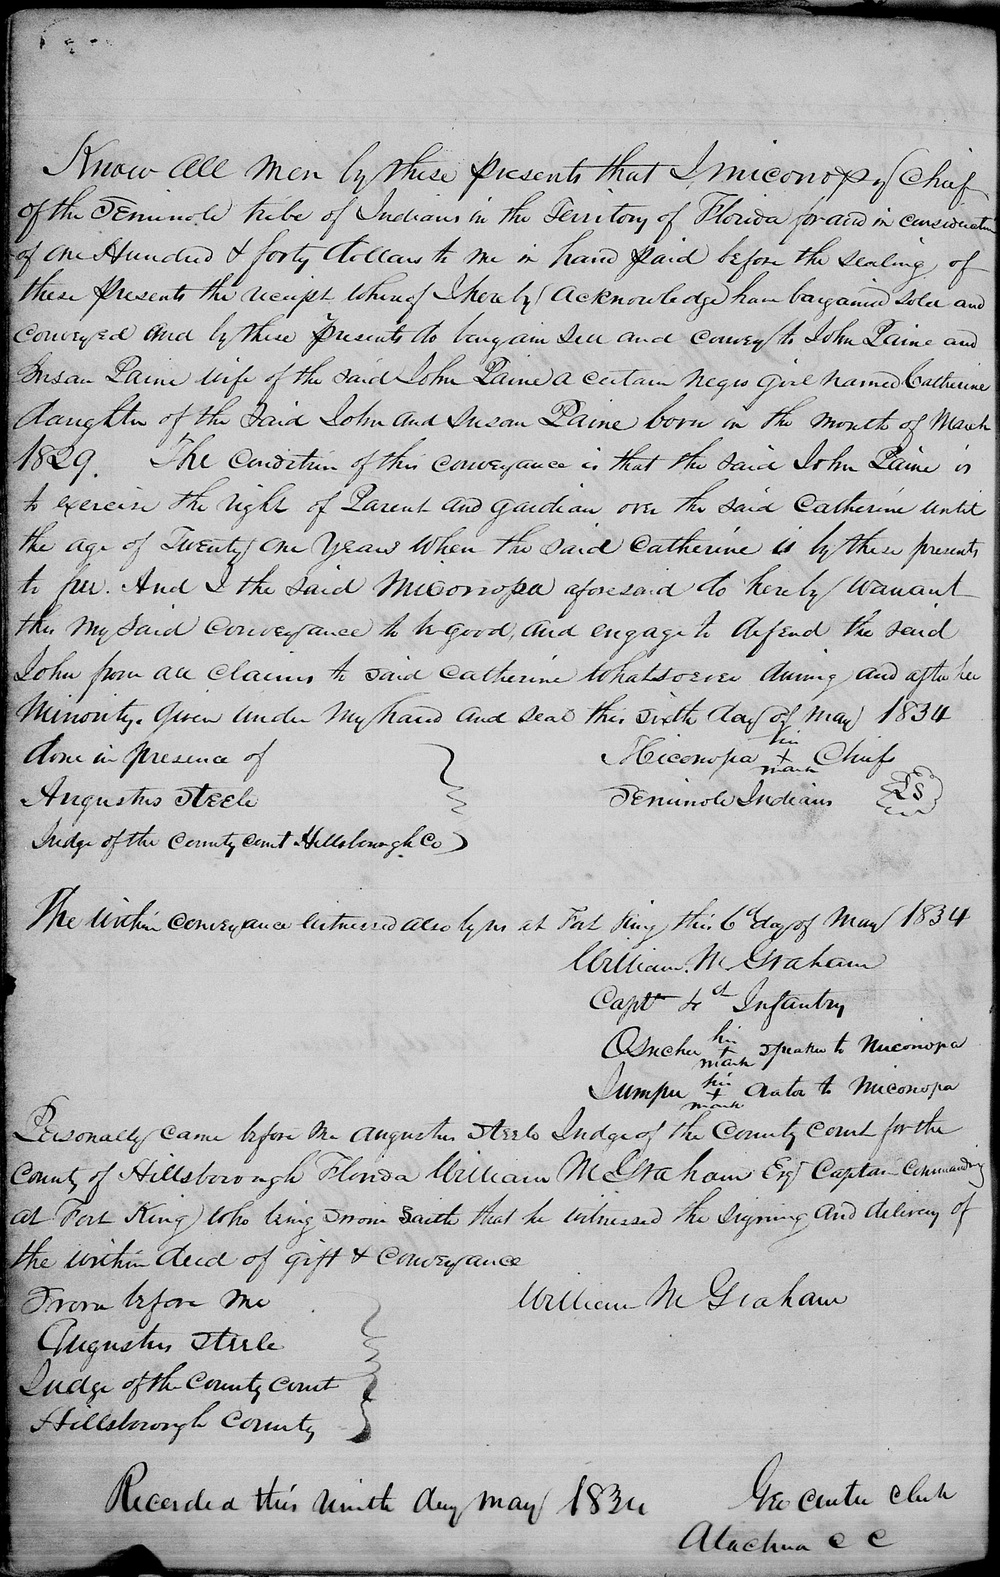 Know all men by these presents that I, miconopy Chief
of the Seminole tribe of Indians in the Territory of Florida for and in consideration
of one Hundred & forty dollars to me in hand paid before the sealing of
these presents the receipt whereof I hereby acknowledge have bargained sold and
conveyed and by these presents do bargain sell and convey to John Paine and
Susan Paine wife of the said John Paine a certain negro girl named Catherine
daughter of the said John and Susan Paine born in the month of March
1829. The condition of this conveyance is that the said John Paine is
to exercise the right of Parent and gardian over the said Catherine until
the age of Twenty one years when the said Catherine is by these presents
to free. And I the said Miconopa aforesaid do hereby warrant
this my said conveyance to be good, and engage to defend the said
John from all claims to said Catherine whatsoever during and after her
minority. Given under my hand and seal this sixth day of may 1834
done in presence of
Augustus Steele
Judge of the County Court Hillsborough Co
Miconopa his + mark Chief
Seminole Indians LS
The within conveyance witnessed also by us at Fort King this 6th day of May 1834
William. M Graham
Capt 4th Infantry
his + mark speaker to Miconopa
Jumper his + mark orator to Miconopa
Personally came before me Augustus Steele Judge of the County Court for the
County of Hillsborough Florida William M Graham Esqr Captain Commanding
at Fort King who being Sworn Saith that he witnessed the signing and delivery of
the within deed of gift & conveyance
Sworn before me
Augustus Steele
Judge of the County Court
Hillsborough County
William M Graham
Recorded this ninth day may 1834
Geo Center Clerk
Alachua C C